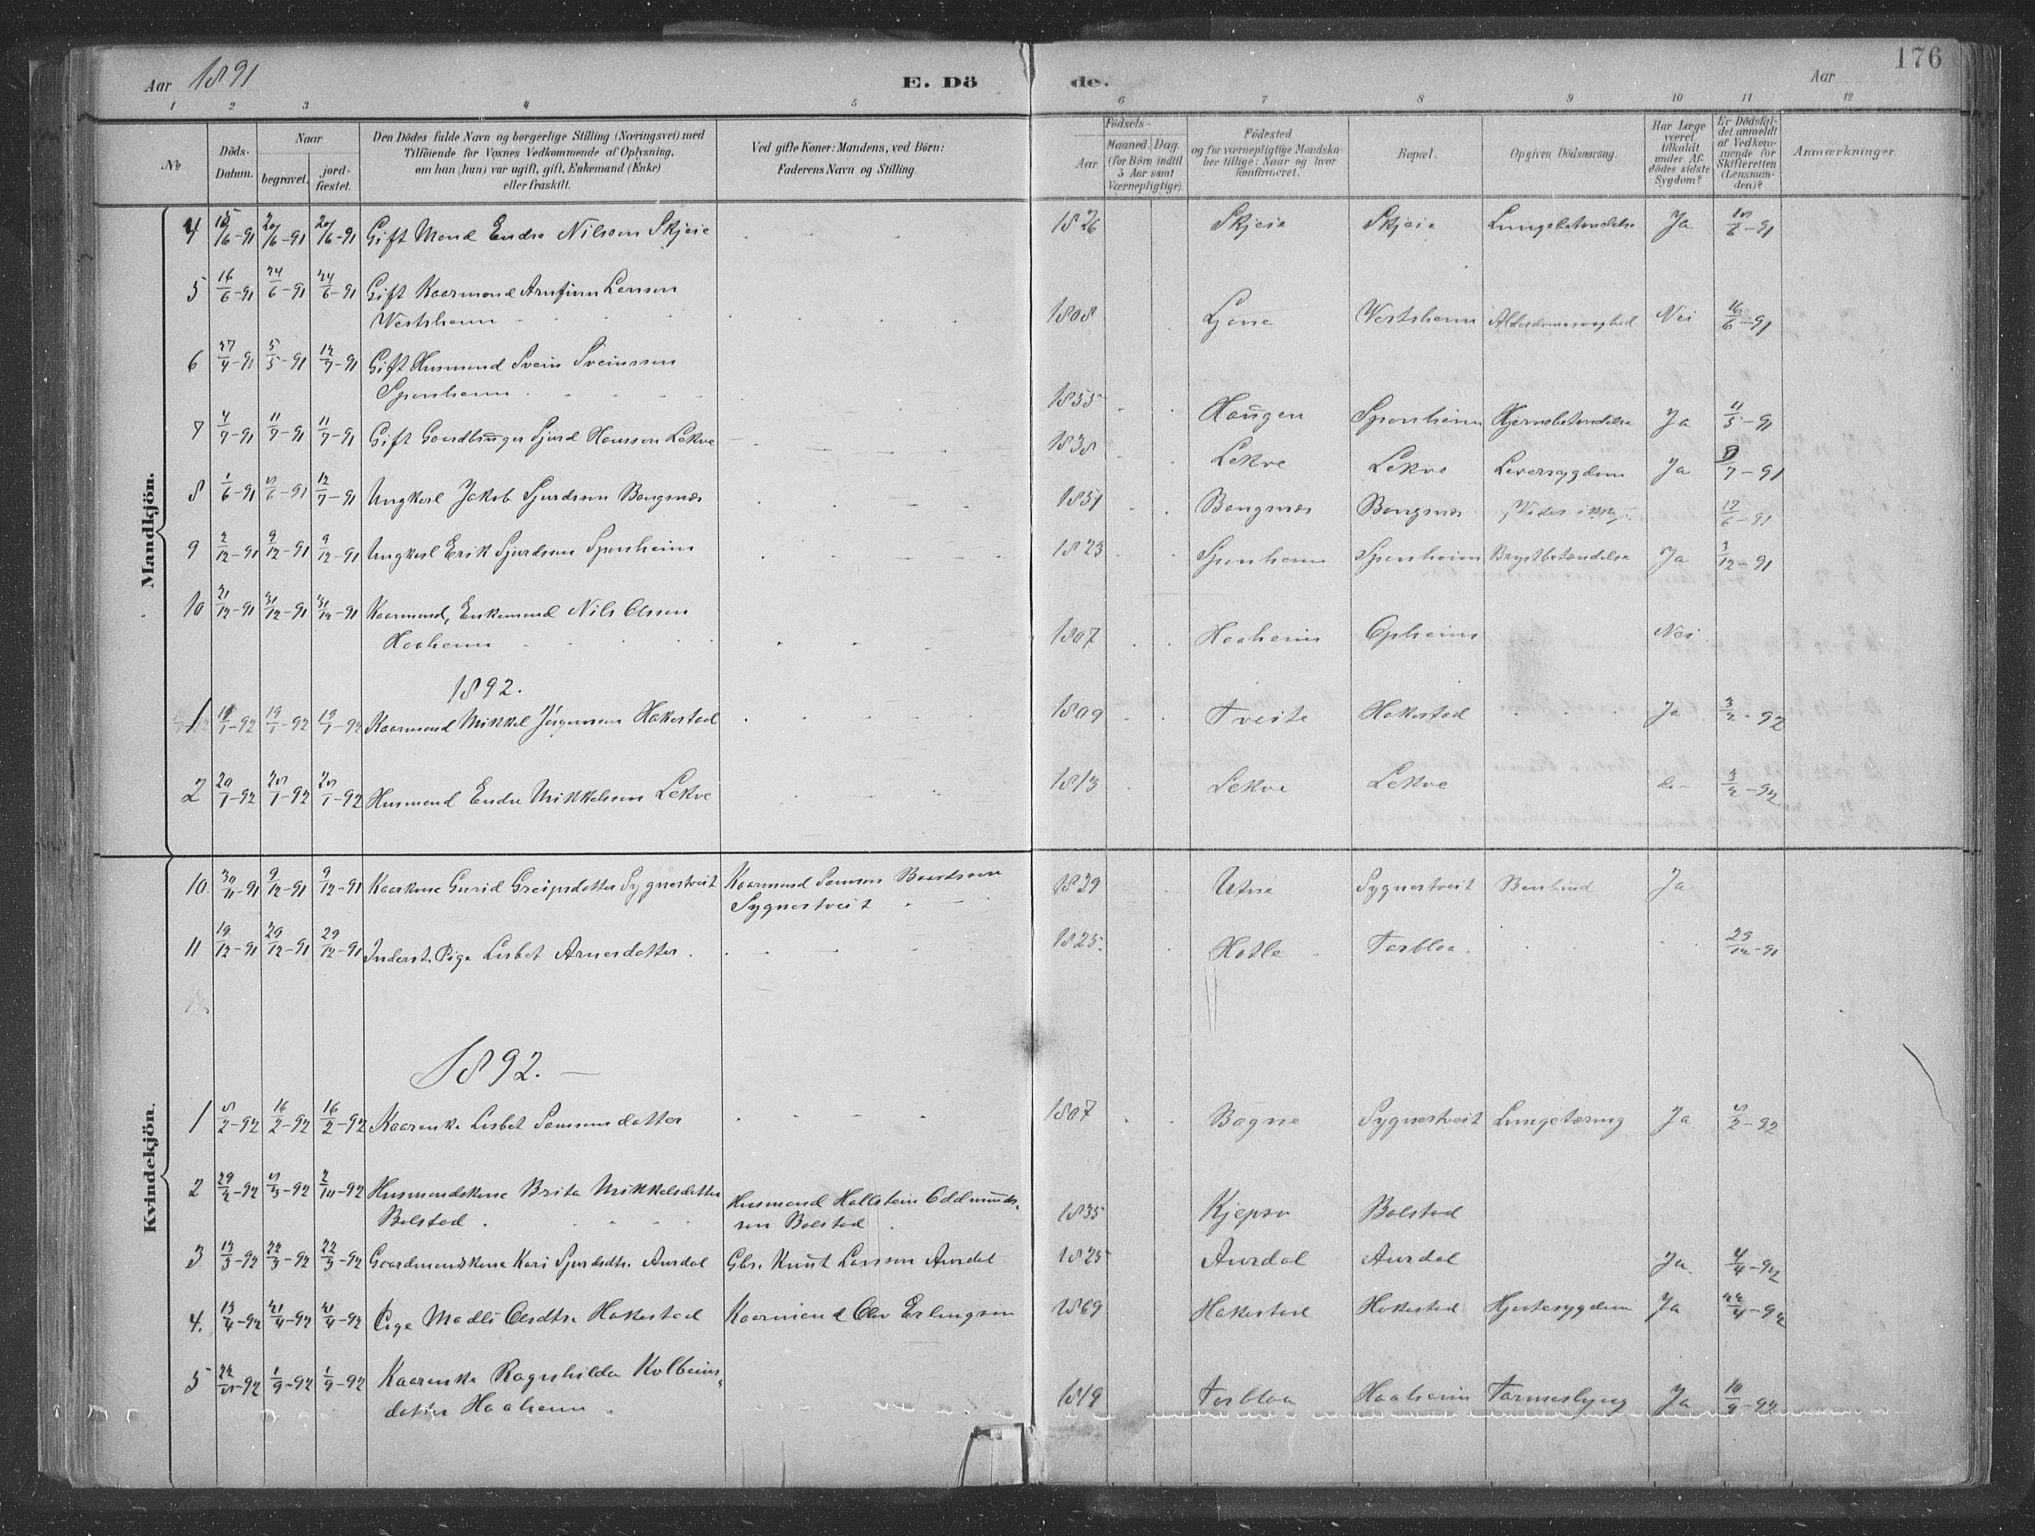 176
Aar 1891
E. Dö de.
Aar
1 2 3 4 5 6 7 8 9 10 11 12
No
Döds-Datum.
Naar
begravet.
jord-fæstet.
Den Dödes fulde Navn og borgerlige Stilling (Næringsvei) med
Tilföiende for Voxnes Vedkommende af Oplysning,
om han (hun) var ugift, gift, Enkemand (Enke)
eller fraskilt.
Ved gifte Koner: Mandens, ved Börn:
Faderens Navn og Stilling.
Födsels-
Aar
Maaned. Dag.
(for Börn indtil
5 Aar samt
Værnepligtige).
Födested
og for værnepligtige Mandska-
ber tillige: Naar og hvor
Konfirmeret.
Bopæl.
Opgiven Dödsaarsag.
Har Læge
været
tilkaldt
under Af-
dödes sidste
Sygdom?
Er Dödsfal-
det anmeldt
af Vedkom-
mende for
Skifteretten
(Lensman-
den)?
Anmærkninger.
Mandkjön.
4 20/6-91 20/6-91 Gift Mand Endre Nilsson Skjeie 1826 Skjeie Skjeie Lungebetændelse Ja
5 16/6-91 24/6-91 24/6-91 Gift Kaarmand Arnfinn Larsson
Vestrheim 1808 Ljone Vestrheim Alderdomssvaghed Nei 16/6-91
6 27/4-91 5/5-91 12/7-91 Gift Husmand Svein Sveinsson
Sponheim 1855 Haugen Sponheim Hjernebetændelse Ja 11/5-91
7 4/7-91 11/7-91 11/7-91 Gift Gaardbruger Sjurd Hansson Lekve 1838 Lekve Lekve Leversygdom Ja
8 1/6-91 8/6-91 12/7-91 Ungkarl Jakob Sjurdsson Bongsnæs 1851 Bongsnæs Bongsnæs 12/6-91
9 2/12-91 9/12-91 9/12-91 Ungkarl Erik Sjurdsson Sponheim 1823 Sponheim Sponheim Brystbetændelse Ja 3/12-91
10 21/12-91 31/12-91 31/12-91 Kaarmand, Enkemand Nils Olsson
Haaheim 1807 Haaheim Opheim Nei
1892.
1 19/1-92 19/1-92 Kaarmand Mikkel Jörgensson Hakestad 1809 Tveite Hakestad Ja 3/2-92
2 20/1-92 28/1-92 28/1-92 Husmand Endre Mikkelson Lekve 1813 Lekve Lekve 3/2-92
Kvindekjön.
10. 30/11-91 9/12-91 9/12-91 Kaarkone Gurid Greipsdatter Sygnestveit Kaarmand Samson Baardsson
Sygnestveit 1829 Utne Sygnestveit Benbrud Ja
11 19/12-91 29/12-91 29/12-91 Inderst. Pige Lisbet Arnesdatter. 1825. Hotle Torbloa. 29/12-91
1892.
1 8/2-92 16/2-92 16/2-92 Kaarenke Lisbet Samsonsdatter 1807 Bagne Sygnestveit Lungetæring Ja 8/2-92
2 29/2-92 8/3-92 2/10-92 Husmandskone Brita Mikkelsdatter
Bolstad. Husmand Hallstein Oddmunds-
son Bolstad 1835 Kjepso Bolstad
3 13/3-92 22/3-92 22/3-92 Gaardmandskone Kari Sjurdsdtr. Aurdal Gbr. Knut Larsson Aurdal 1825 Aurdal Aurdal Ja 4/4-92
4. 13/4-92 21/4-92 21/4-92 Pige Madli Olsdtr Hakestad Kaarmand Olav Erlingson 1869 Hakestad Hakestad Hjertesygdom Ja 22/4-92
5 22/8-92 1/9-92 1/9-92 Kaarenke Ragnhilda Kolbeins-
datter Haaheim. 1819 Torbloa Haaheim Ja 10/9-92